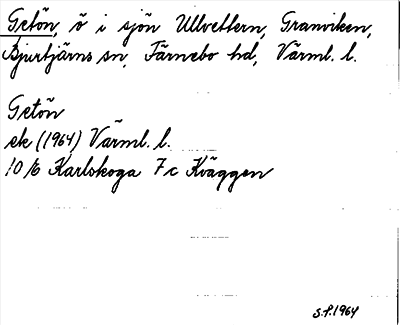 Getön, ö i sjön Ullvettern, Granviken,
Bjurtjärns sn, Färnebo hd, Värml. l.
Getön
ek (1964) Värml. l.
10 E Karlskoga 7 c Kväggen
S.f. 1964